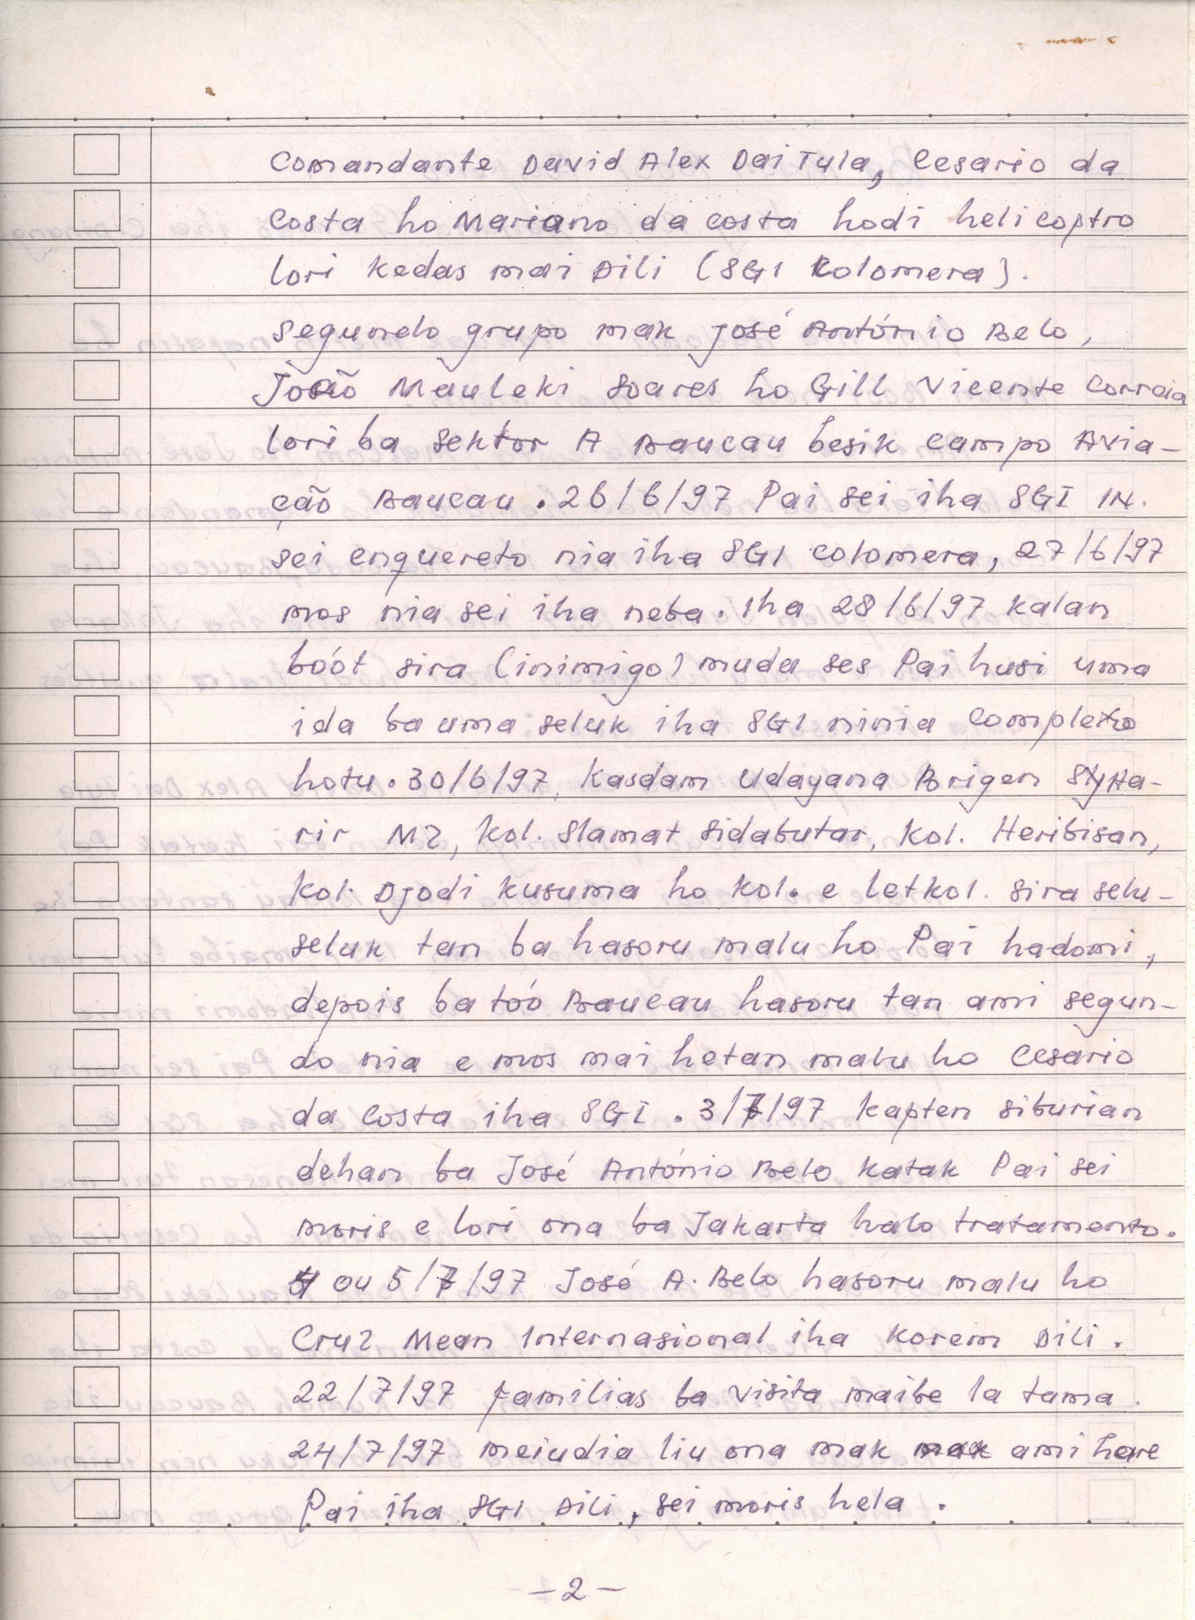 Comandante David Alex Dai Tula, Cesario da
Costa ho Mariano da costa hodi helicoptro
lori kedas mai Dili (SGI Colomera).
Segundo grupo mak José António Belo,
João Mauleki Soares ho Gill Vicente Correia
lori ba sektor A Baucau besik campo Avia-
ção Baucau. 26/6/97 Pai sei iha SGI IN.
sei enquereto nia iha SGI colomera, 27/6/97
mos nia sei iha neba. Iha 28/6/97 kalan
boót sira (inimigo) muda ses Pai husi uma
ida ba uma seluk iha SGI ninia complexo
hotu. 30/6/97, Kasdam Udayana Brigen Sya-
rir MZ, Kol. Slamat Sidabutar, Kol. Heribisan,
Kol. Djodi kusuma ho kol. e letkol. sira selu-
seluk tan ba hasoru malu ho Pai hadomi,
depois ba toó Baucau hasoru tan ami segun-
do nia e mos mai hetan malu ho Cesario
da Costa iha SGI. 3/7/97 kapten siburian
dehan ba José António Belo, katak Pai sei
moris e lori ona ba Jakarta halo tratamento.
4 ou 5/7/97 José A. Belo hasoru malu ho
Cruz Mean Internasional iha Korem Dili.
22/7/97 familias ba visita maibe la tama.
24/7/97 meiudia liu ona mak ami hare
Pai iha SGI Dili, sei moris hela.
-2-